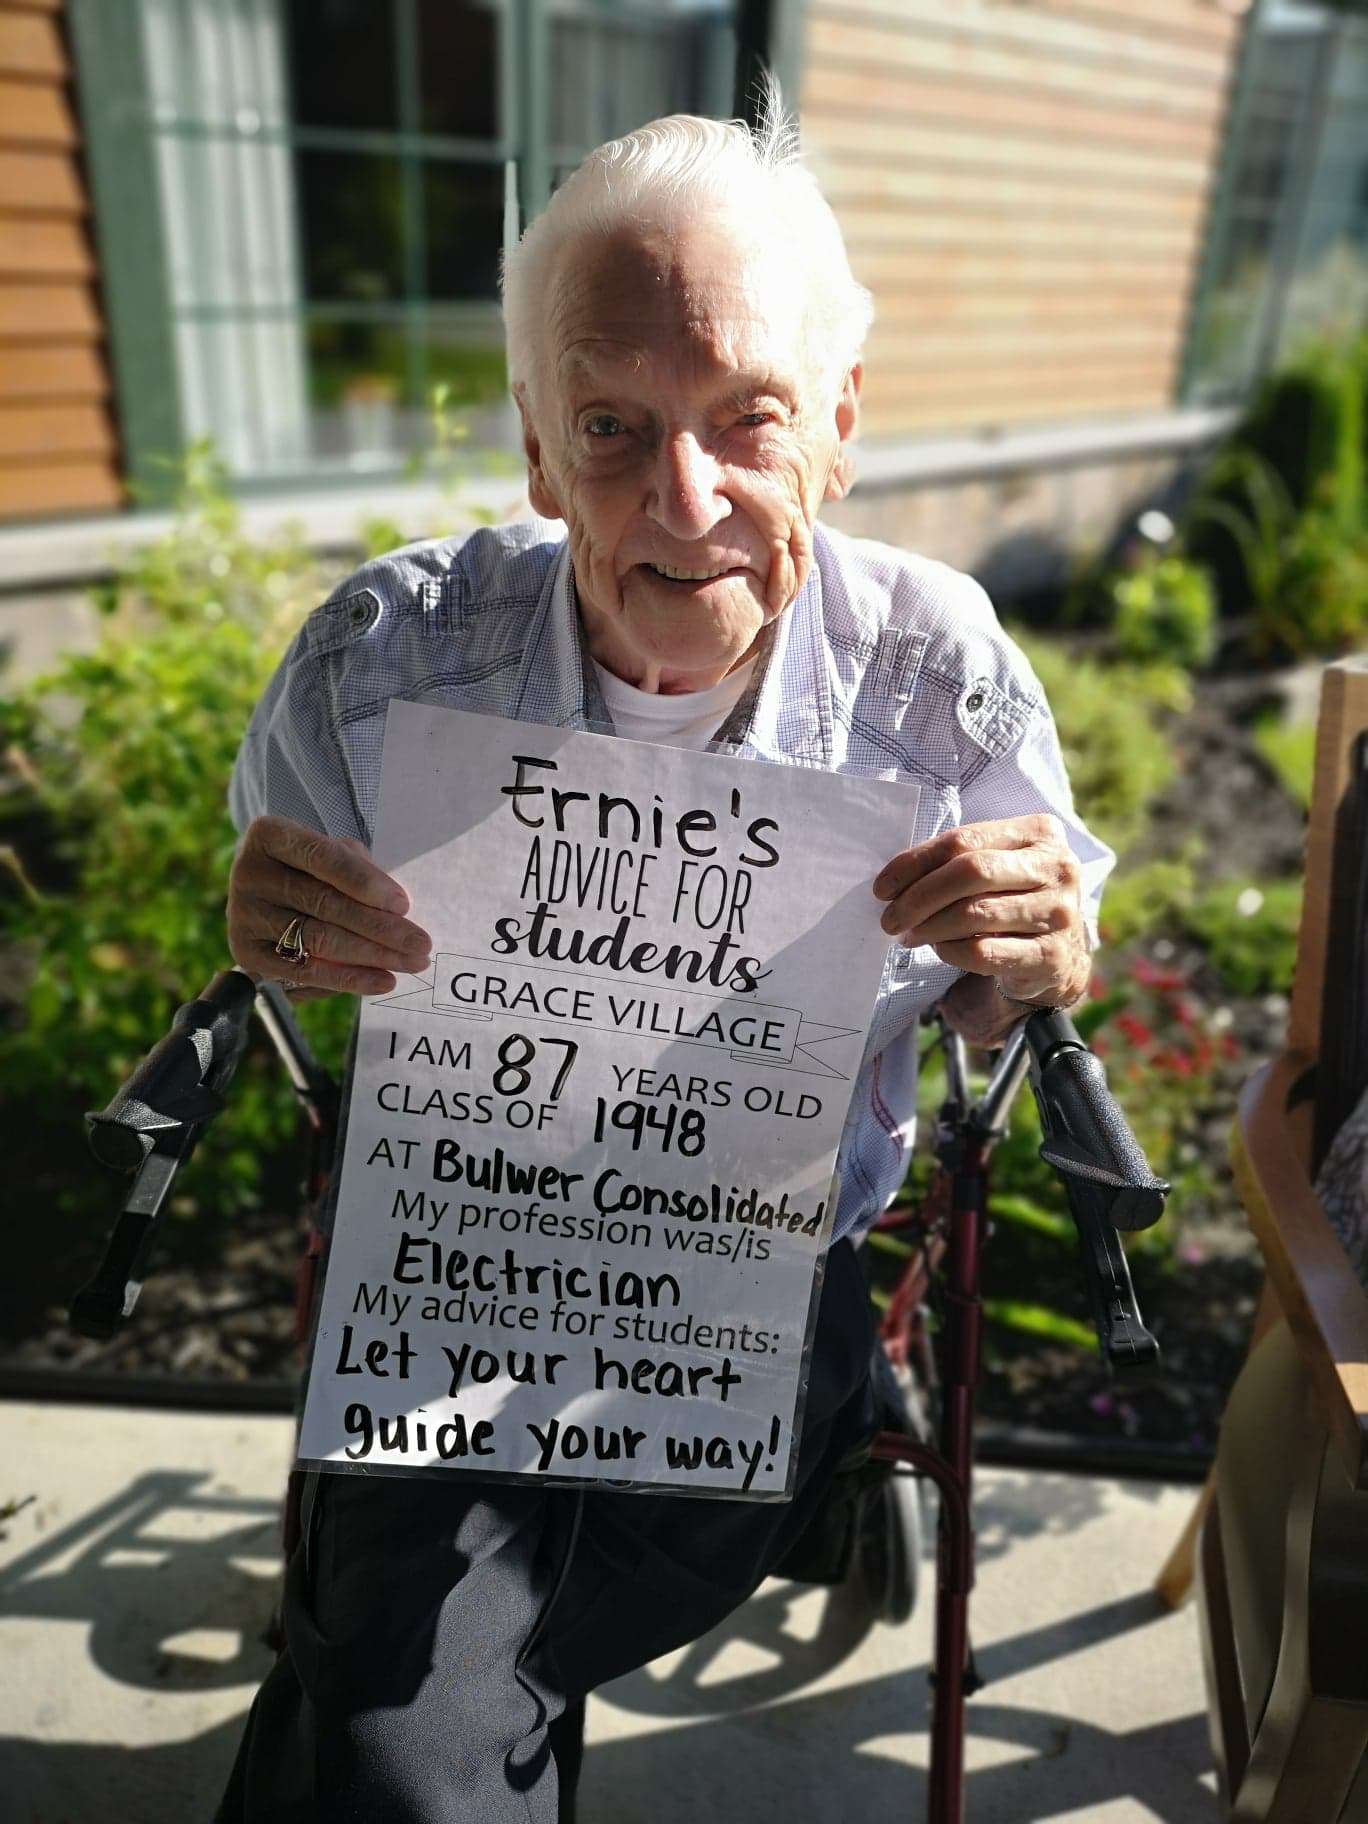 Ernie's
ADVICE FOR
students
GRACE VILLAGE
I AM 87 YEARS OLD
CLASS OF 1948
AT Bulwer Consolidated
My profession was/is
Electrician
My advice for students:
Let your heart
guide your way!